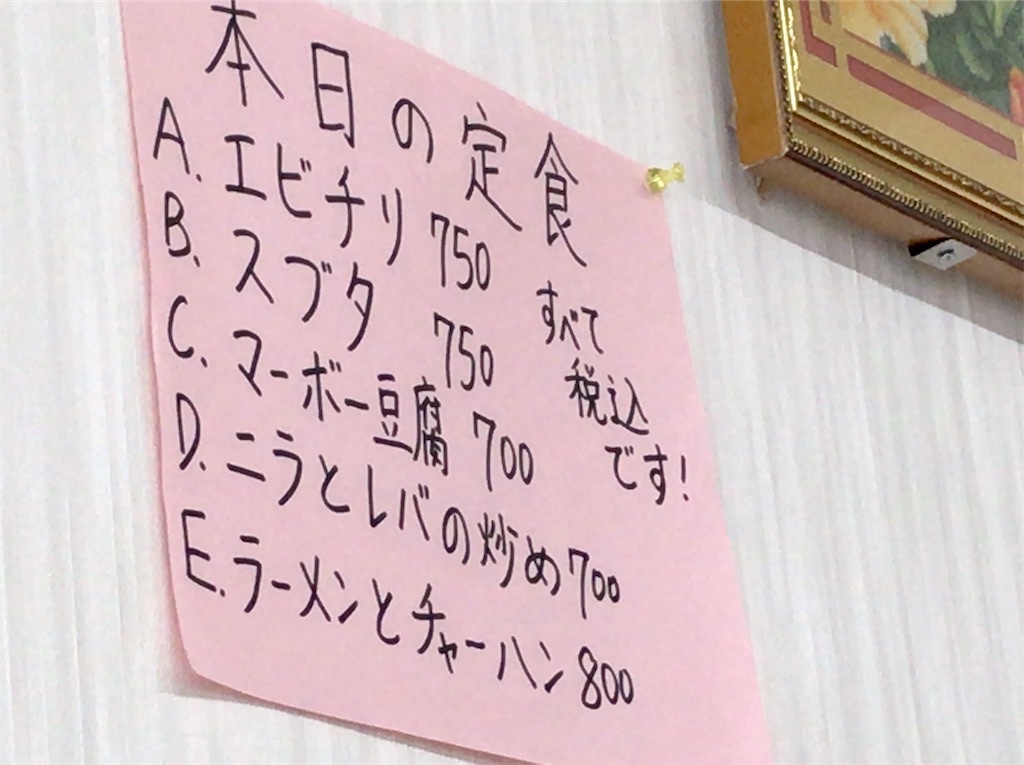 本日の定食
A. エビチリ 750
B. スブタ 750
C. マーボー豆腐 700
D. ニラとレバの炒め 700
E. ラーメンとチャーハン 800
すべて
税込
です!